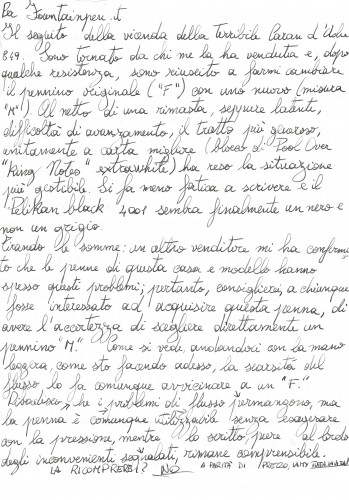 Da Fountainpen.it
Il seguito della vicenda della terribile Caran d'Ache
849. Sono tornato da chi me la ha venduta e, dopo
qualche resistenza, sono riuscito a farmi cambiare
il pennino originale ("F") con uno nuovo (misura
"M"). Al netto di una rimasta, seppure latente,
difficoltà di avanzamento, il tratto più generoso,
unitamente a carta migliore (blocco di Fool Over
"Ring Notes" extrawhite) ha reso la situazione
più gestibile. Si fa meno fatica a scrivere e il
Pelikan black 4001 sembra finalmente un nero e
non un grigio.
Tirando le somme: un altro venditore mi ha conferma
to che le penne di questa casa e modello hanno
spesso questi problemi; pertanto, consiglierei a chiunque
fosse interessato ad acquisire questa penna, di
avere l'accortezza di scegliere direttamente un
pennino "M". Come si vede, andandoci con la mano
leggera, come sto facendo adesso, la scarsità del
flusso lo fa comunque avvicinare a un "F".
Ribadisco, che i problemi di flusso permangono, ma
la penna è comunque utilizzabile senza esagerare
con la pressione, mentre lo scritto, pure al bordo
degli inconvenienti segnalati, rimane comprensibile.
LA RICOMPREREI? NO A PARITÀ DI PREZZO, LAMY